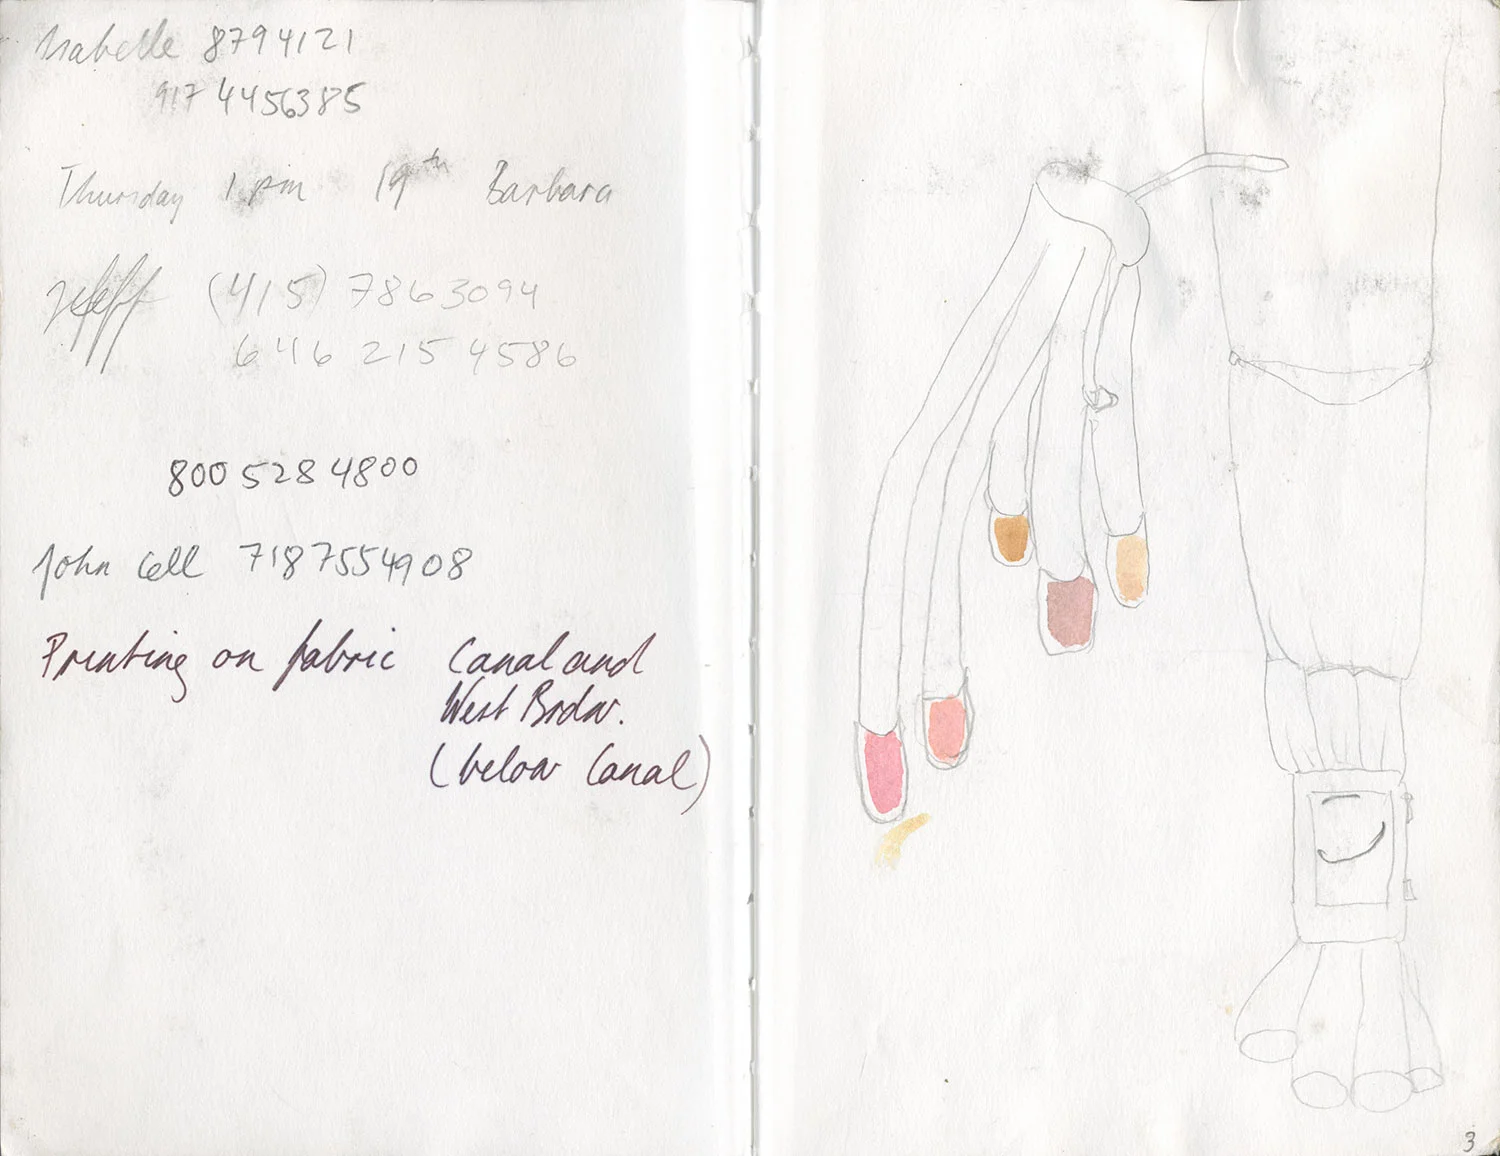 Isabelle 8794121
917 4456385
Thursday 1 pm 19th Barbara
Jeff (415) 7863094
646 215 4586
800 528 4800
John Cell 718 7554908
Printing on fabric Canal and
West Brdw.
(below Canal)
3